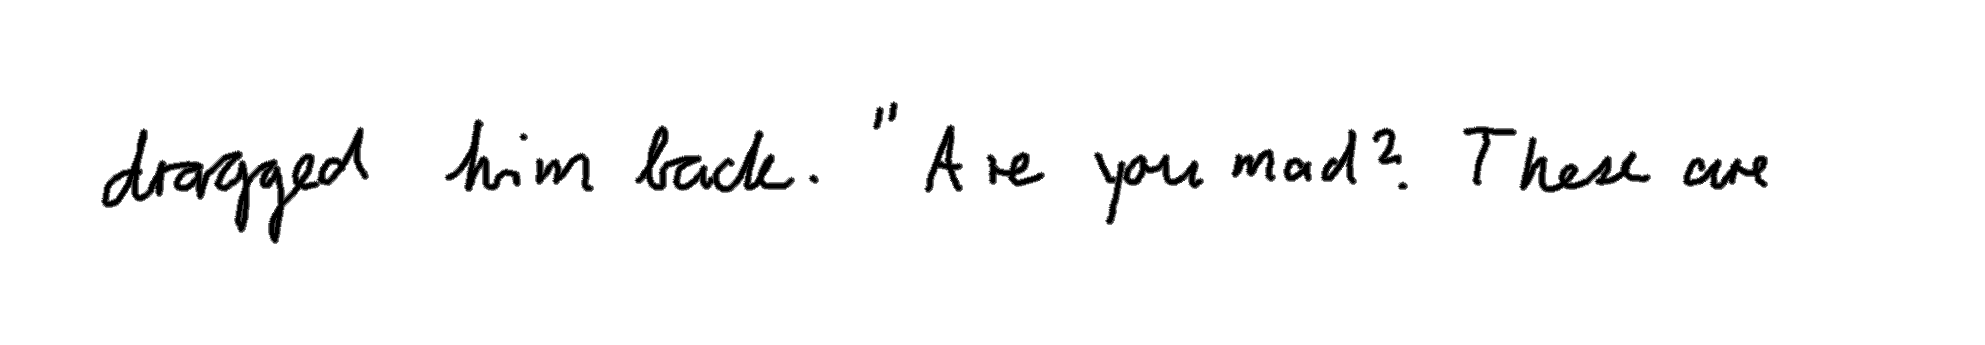 dragged him back. "Are you mad? These are